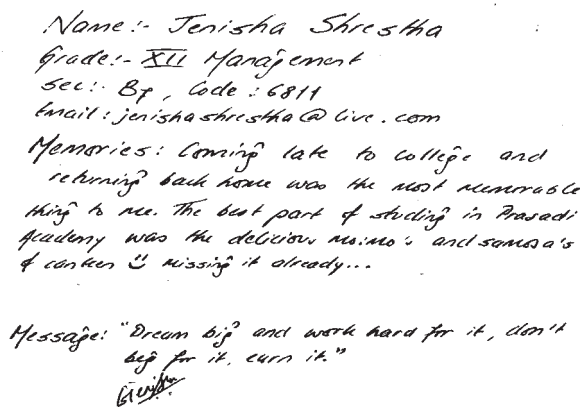 Name:- Jenisha Shrestha
Grade:- XII Management
Sec:- B7, Code : 6811
Email : jenishashrestha@live.com
Memories: Coming late to college and
returning back home was the most memorable
thing to me. The best part of studing in Prasadi
Academy was the delicious mo:mo's and samosa's
of canteen ☺ missing it already...
Message: "Dream big and work hard for it, don't
beg for it, earn it."